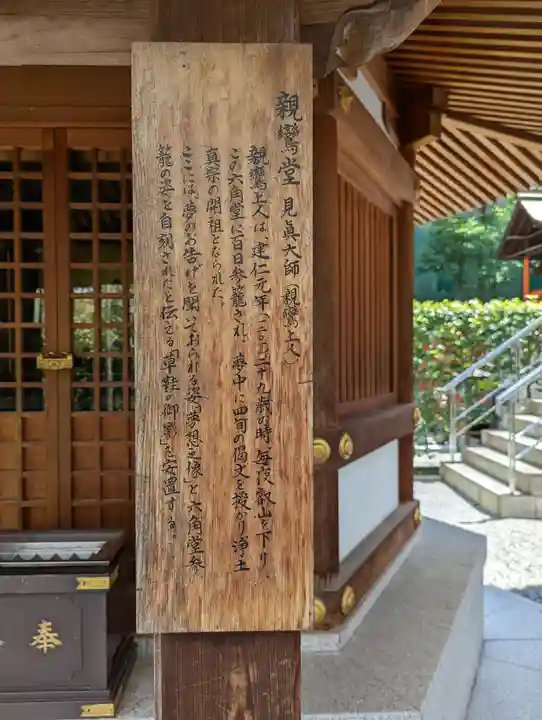 親鸞堂 見眞大師(親鸞上人)
親鸞上人は、建仁元年(一二〇一)二十九歳の時、毎夜叡山を下り
この六角堂に百日参籠され、夢中に四句の偈文を授かり浄土
真宗の開祖となられた。
ここには夢のお告げを聞いておられる姿「夢想之像」と六角堂参
籠の姿を自刻されたと伝える「草鞋の御影」を安置する。
奉